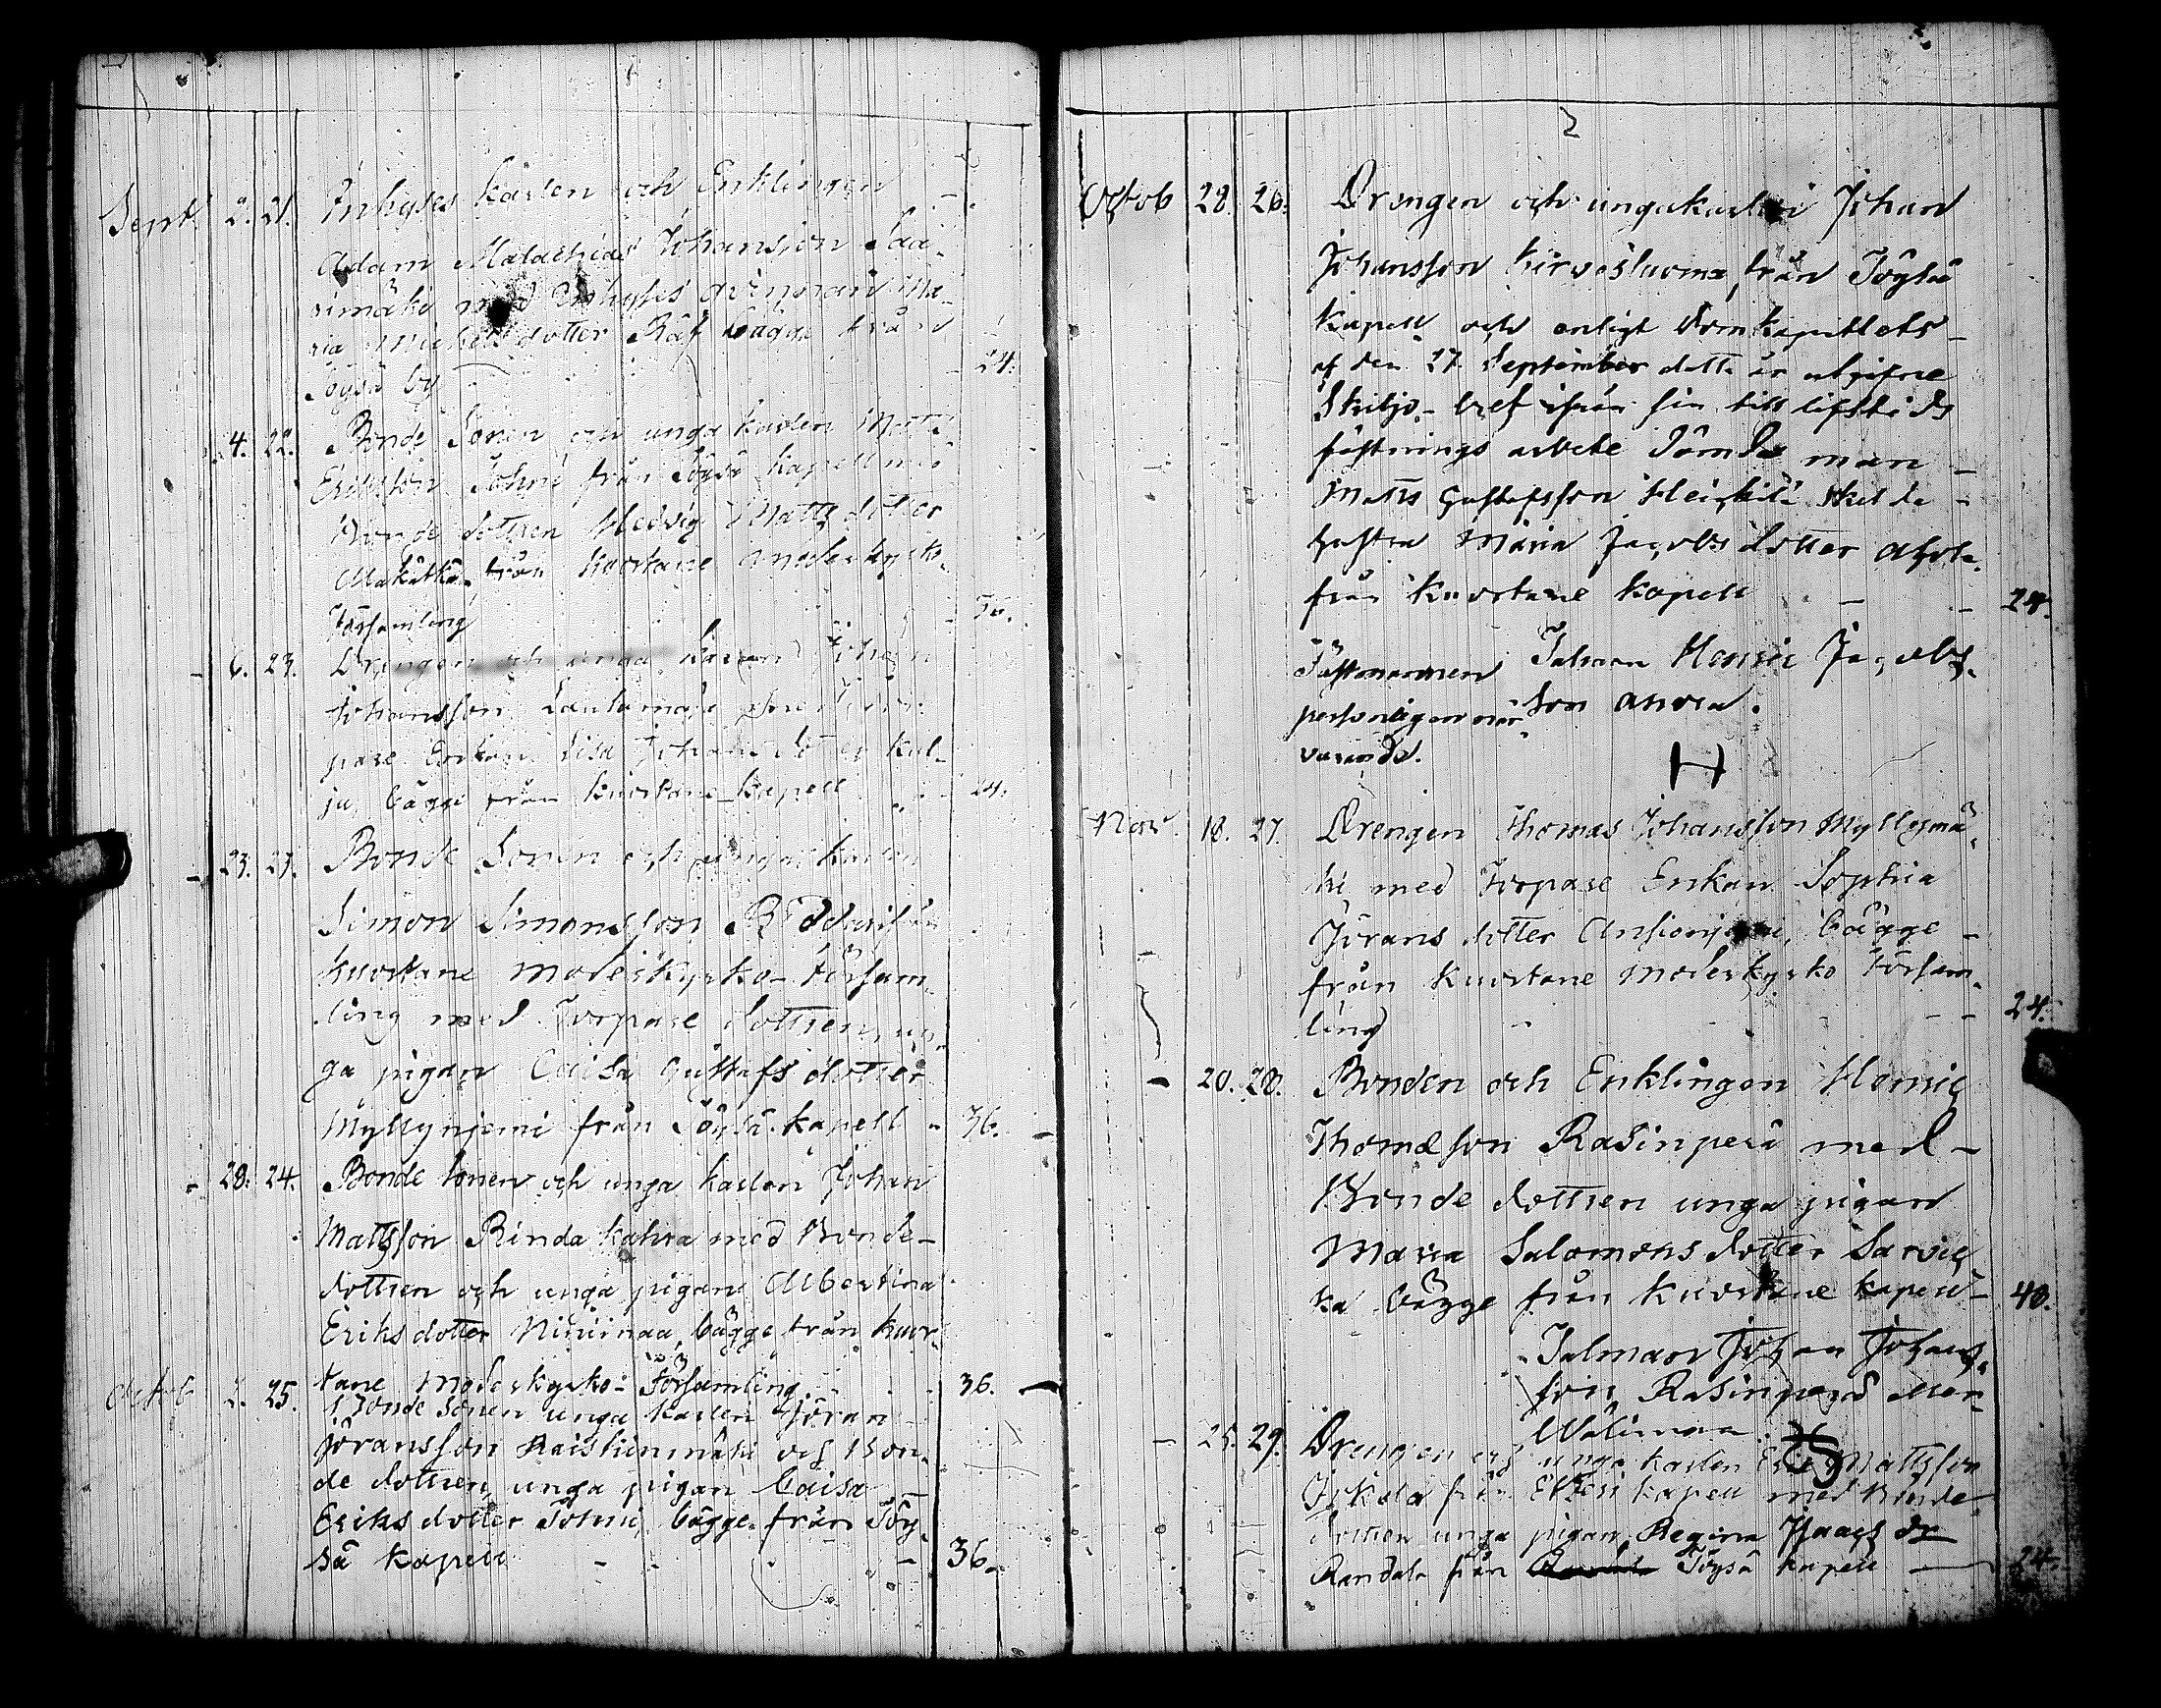 Sept. 2. 21. Inhyses karlen och Enklingen
Adam Malachias Johansson Saa-
rimäki med Inhyses Ma-
ria Michels dotter Räf bägge från
Töysä by 24.
4. 22. Bonde Sonen och unga karlen Matts
Eriksson Tohni från Töysä Kapell med
Bonde dottren Hedvig Matts dotter
från Kuortane moderkyrko-
Församling
6. 23. Drengen och unga karlen Johan
Johansson Lautamäki
pare Enkan Lisa Johans dotter Kul-
ju, bägge från Kuortane Kapell 24.
23. 23. Bonde Sonen och unga karlen
Simon Simonsson
Kuortane moderkyrko-Församl-
ling med Torpare dottren, un-
ga pigan Caisa Gustafs dotter
Myllyniemi från Töysä kapell - 36.
28. 24. Bonde sonen och unga karlen Johan
Mattsson Rinda kahra med Bonde-
dottren och unga pigan Albertina
Eriks dotter Niininaa, bägge från Kuor-
tane Moderkyrko-Församling 36.
Octob 2. 25. Bonde sonen unga karlen Jöran
Jöransson Raiskinmäki och Bon-
de dottren, unga pigan Caisa
Eriks dotter Tohni, bägge från Töy-
sä kapell 36.
Octob 28. 26. Drengen och ungakarlen Johan
Johansson Kirvesluoma, från Töysä
Kapell och enligt Domkapitlets
af den 27. September detta år utgifne
Skiljo-bref ifrån sin till lifstids
fästnings arbete Dömda man
Matts Gustafsson Heikkilä skilda
hustru Maria Jacobs dotter
från Kuortane kapell 24.
Fästmannen Talman Henric Jacobs-
personligen när- son
varande.
H
Nov 18. 27. Drengen Thomas Johansson Myllymä-
ki med Torpare Enkan Sophia
Jörans dotter bägge
från Kuortane moderkyrko Försam-
ling 24.
20. 28. Bonden och Enklingen Henric
Thomæson Rasinperä med
Bonde dottren unga pigan
Maria Salomons dotter Sarvic-
ka bägge från Kuortane kapell 40.
Talman Johan Johans-
son Rasinperä
25. 29. Drengen och unga karlen Eric Mattsson
från Etseri kapell med Bonde
dottren unga pigan Regina Isaacs dr
Randala från Töysä kapell 24.